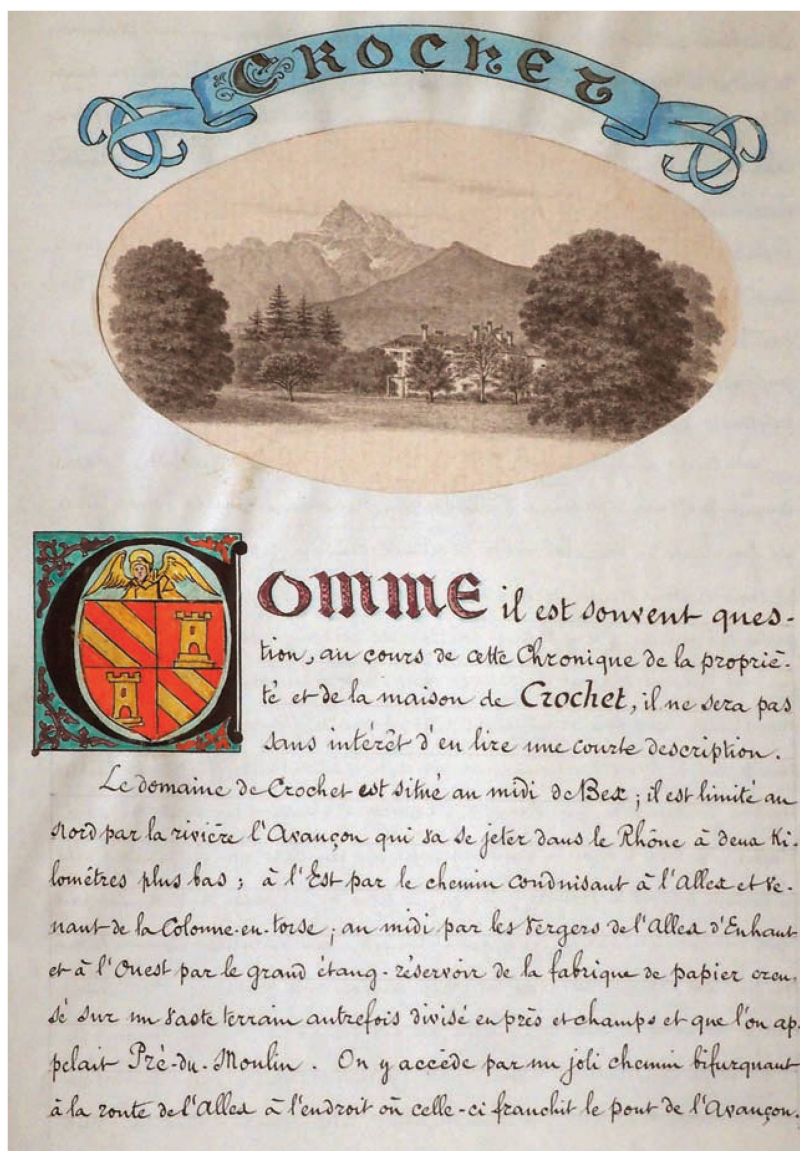 CROCHET
COMME il est souvent ques-
tion, au cours de cette Chronique de la proprié-
té et de la maison de Crochet, il ne sera pas
sans intérêt d'en lire une courte description.
Le domaine de Crochet est situé au midi de Bex ; il est limité au
Nord par la rivière l'Avançon qui va se jeter dans le Rhône à deux Ki-
lomètres plus bas ; à l'Est par le chemin conduisant à l'Allex et ve-
nant de la Colonne-en-torse ; au midi par les Vergers de l'Allex d'Enhaut
et à l'Ouest par le grand étang-réservoir de la fabrique de papier creu-
sé sur un vaste terrain autrefois divisé en prés et champs et que l'on ap-
pelait Pré-du-Moulin. On y accède par un joli chemin bifurquant
à la route de l'Allex à l'endroit où celle-ci franchit le pont de l'Avançon.